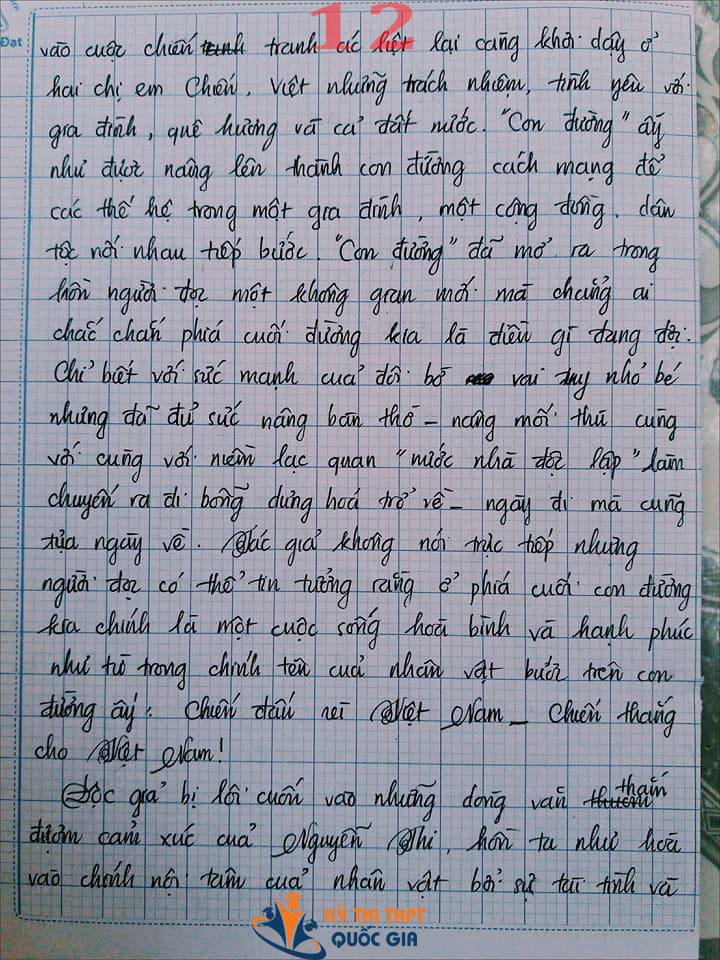 12
Đạt
vào cuộc chiến tranh tranh ác liệt lại càng khơi dậy ở
hai chị em Chiến, Việt những trách nhiệm, tình yêu với
gia đình, quê hương và cả đất nước. "Con đường" ấy
như được nâng lên thành con đường cách mạng để
các thế hệ trong một gia đình, một cộng đồng, dân
tộc nối nhau tiếp bước. "Con đường" đã mở ra trong
hồn người đọc một không gian mới mà chẳng ai
chắc chắn phía cuối đường kia là điều gì đang đợi.
Chỉ biết với sức mạnh của đôi bờ vai tuy nhỏ bé
nhưng đã đủ sức nâng bàn thờ - nâng mối thù cùng
với cùng với niềm lạc quan "nước nhà độc lập" làm
chuyến ra đi bỗng dưng hoá trở về - ngày đi mà cũng
tựa ngày về. Tác giả không nói trực tiếp nhưng
người đọc có thể tin tưởng rằng ở phía cuối con đường
kia chính là một cuộc sống hoà bình và hạnh phúc
như trong chính tên của nhân vật bước trên con
đường ấy: Chiến đấu Việt Nam - Chiến thắng
cho Việt Nam!
Độc giả bị lôi cuốn vào những dòng văn thấm
đượm cảm xúc của Nguyễn Thi, hồn ta như hoà
vào chính nội tâm của nhân vật bởi sự tài tình và
KỲ THI THPT
QUỐC GIA